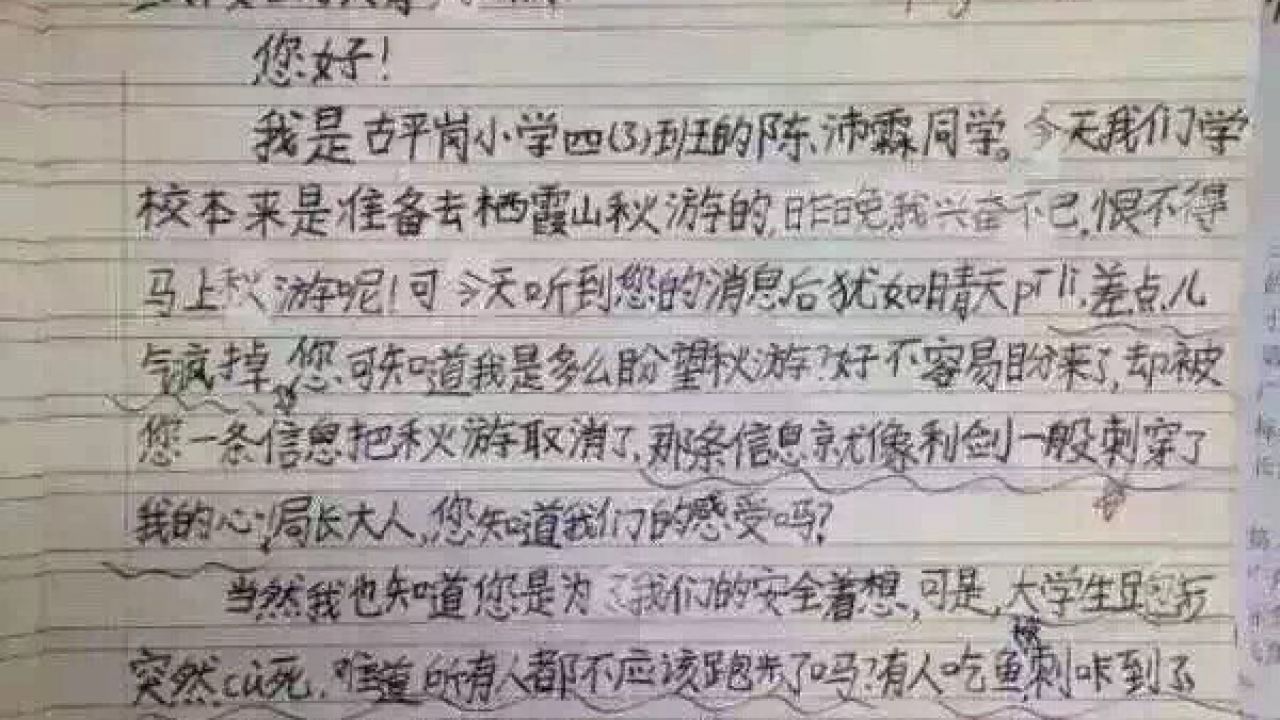 您好!
我是古平岗小学四(3)班的陈沛霖同学。今天我们学
校本来是准备去栖霞山秋游的,昨晚我兴奋不已,恨不得
马上秋游呢!可今天听到您的消息后犹如晴天pī lì,差点儿
气疯掉。您可知道我是多么盼望秋游?好不容易盼来了,却被
您一条信息把秋游取消了,那条信息就像利剑一般刺穿了
我的心,局长大人,您知道我们的感受吗?
当然我也知道您是为了我们的安全着想,可是,大学生跑步
突然cù死,难道所有人都不应该跑步了吗?有人吃鱼刺咔到了